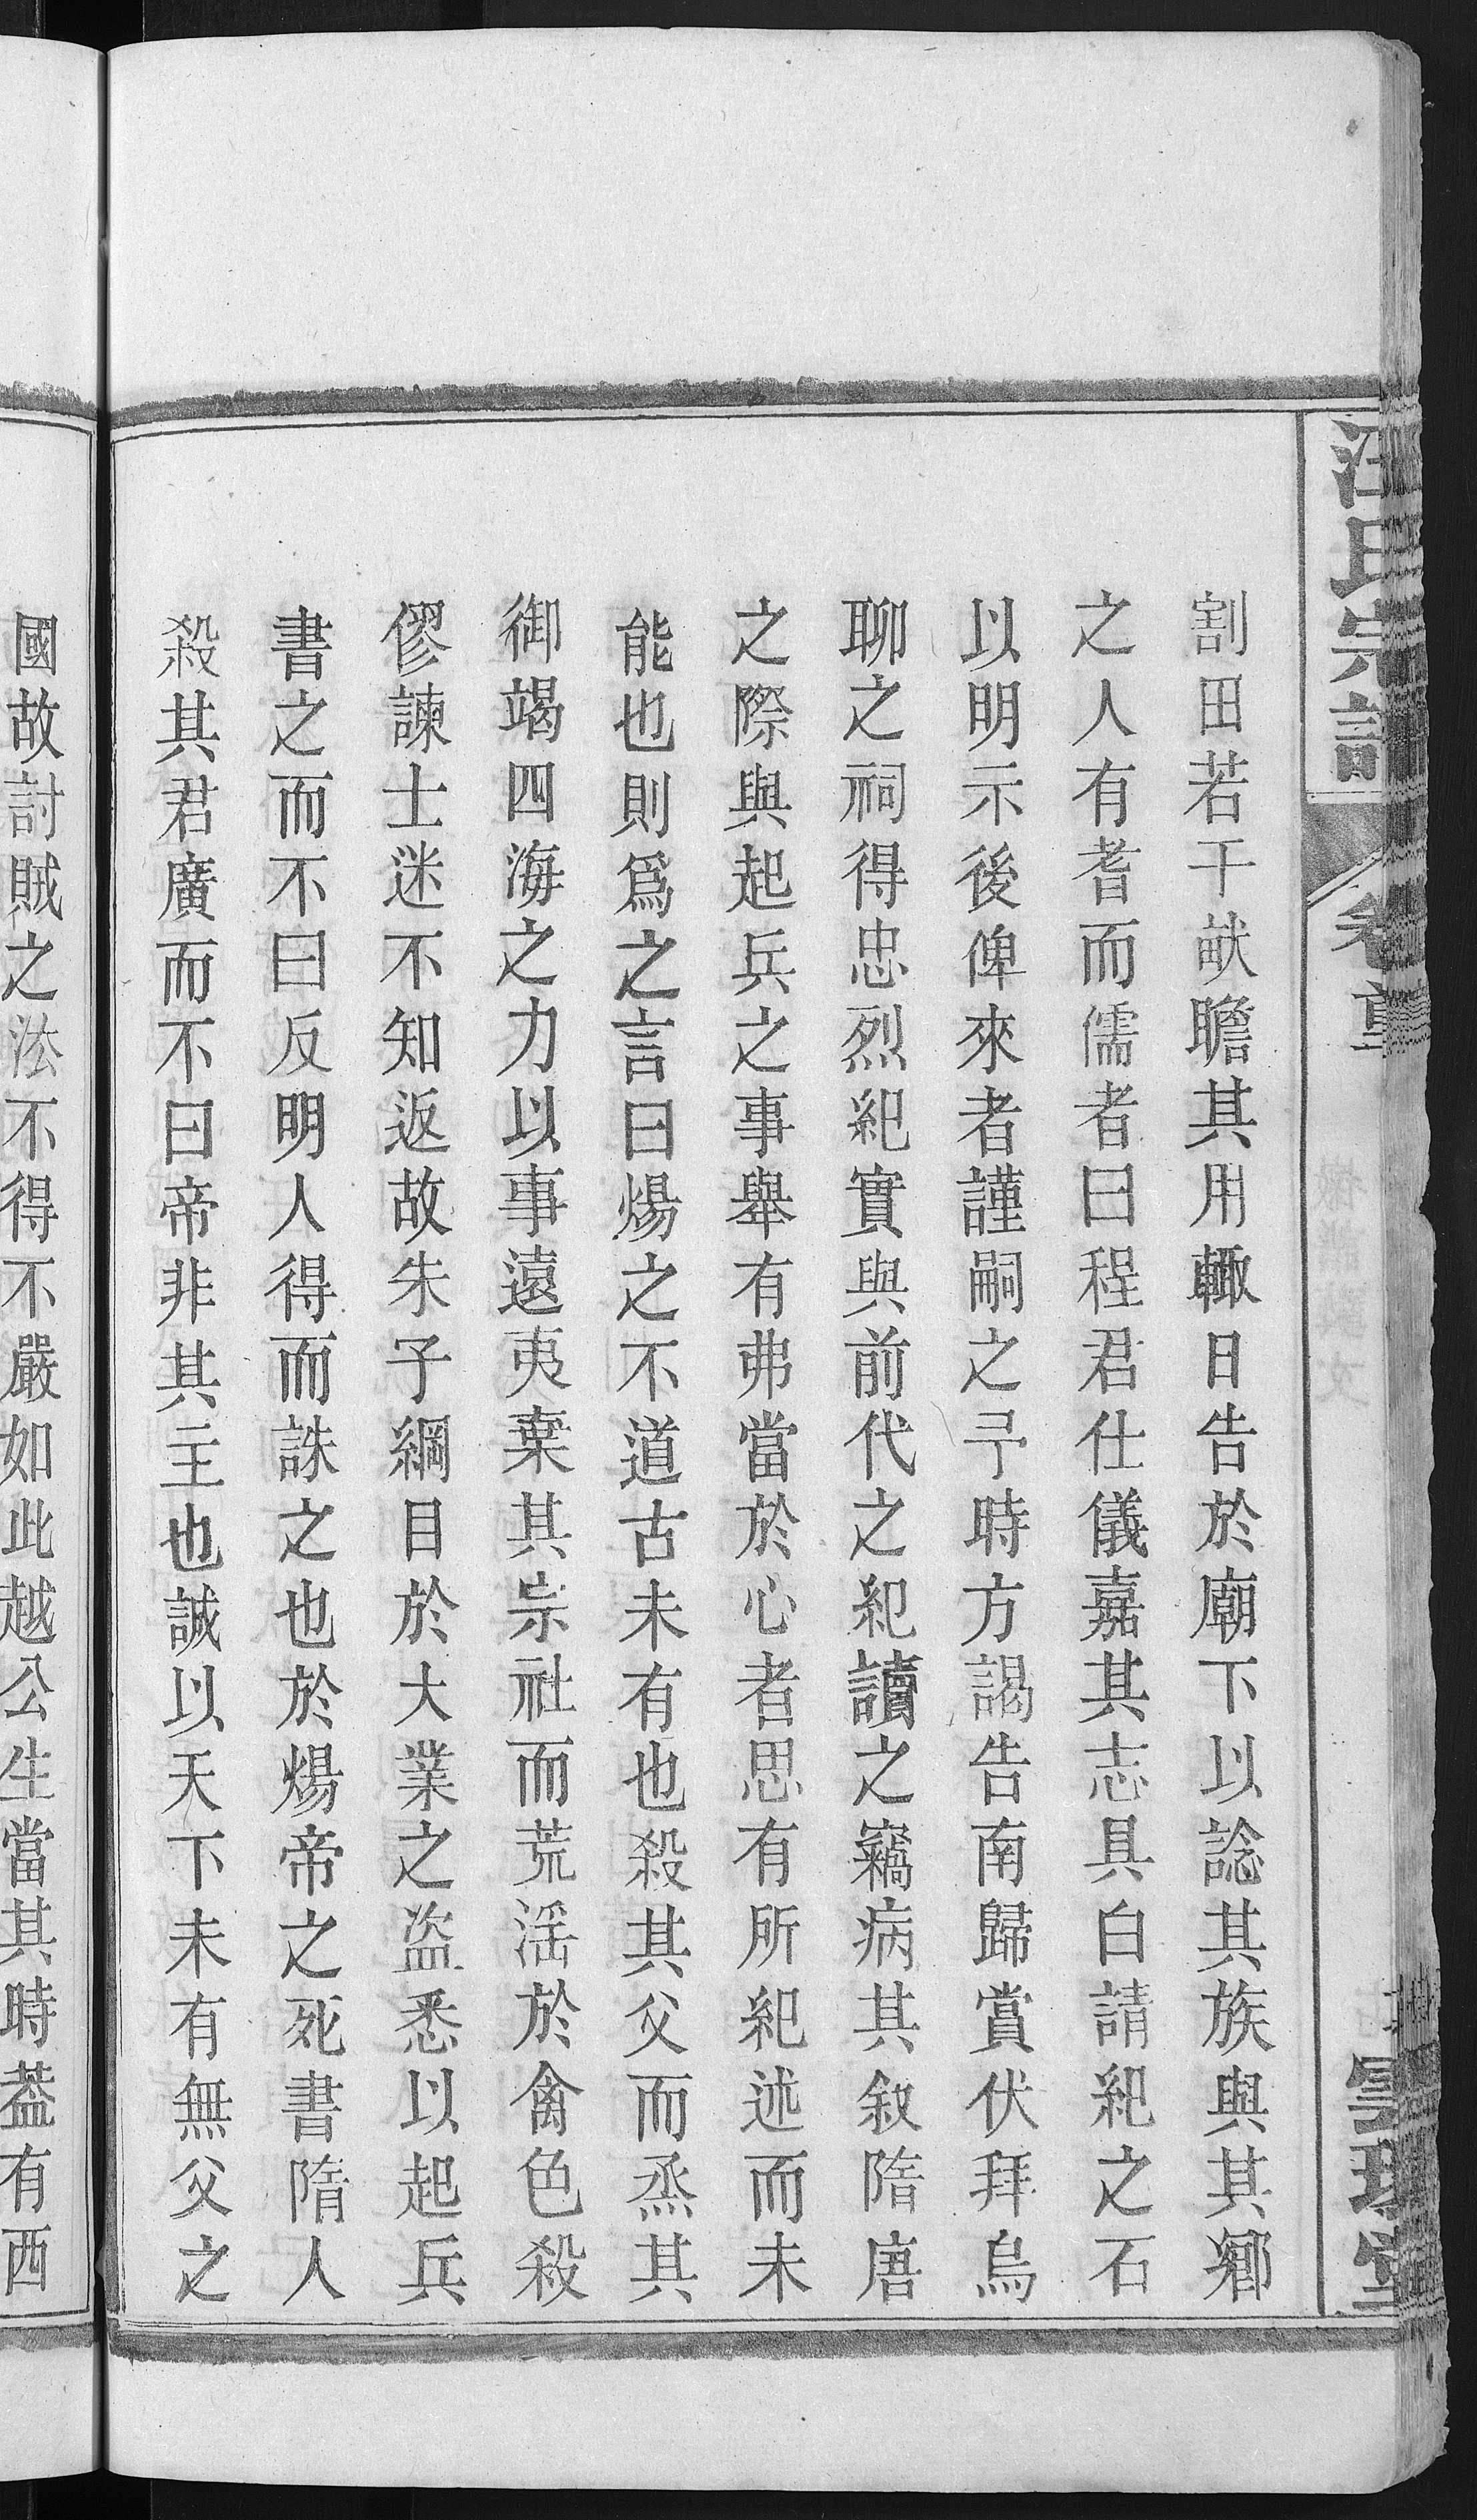 汪氏宗譜
割田若干畝贍其用輙日告於廟下以諗其族與其鄉
之人有耆而儒者曰程君仕儀嘉其志具白請紀之石
以明示後俾來者謹嗣之予時方謁告南歸賞伏拜烏
聊之祠得忠烈紀實與前代之紀讀之竊病其敘隋唐
之際與起兵之事舉有弗當於心者思有所紀述而未
能也則爲之言曰煬之不道古未有也殺其父而烝其
御竭四海之力以事遠夷棄其宗社而荒淫於禽色殺
僇諫士迷不知返故朱子綱目於大業之盜悉以起兵
書之而不曰反明人得而誅之也於煬帝之死書隋人
殺其君廣而不曰帝非其主也誠以天下未有無父之
國故討賊之法不得不嚴如此越公生當其時葢有西